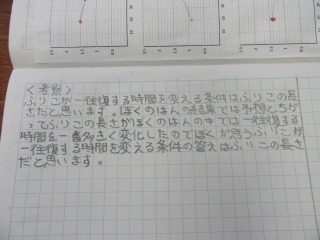 <考察>
ふりこが一往復する時間を変える条件はふりこの長
さだと思います。ぼくのはんの結果では予想とちが
ってふりこの長さがぼくのはんの中では一往復する
時間を一番大きく変化したのでぼくが思うふりこが
一往復する時間を変える条件の答えはふりこの長さ
だと思います。